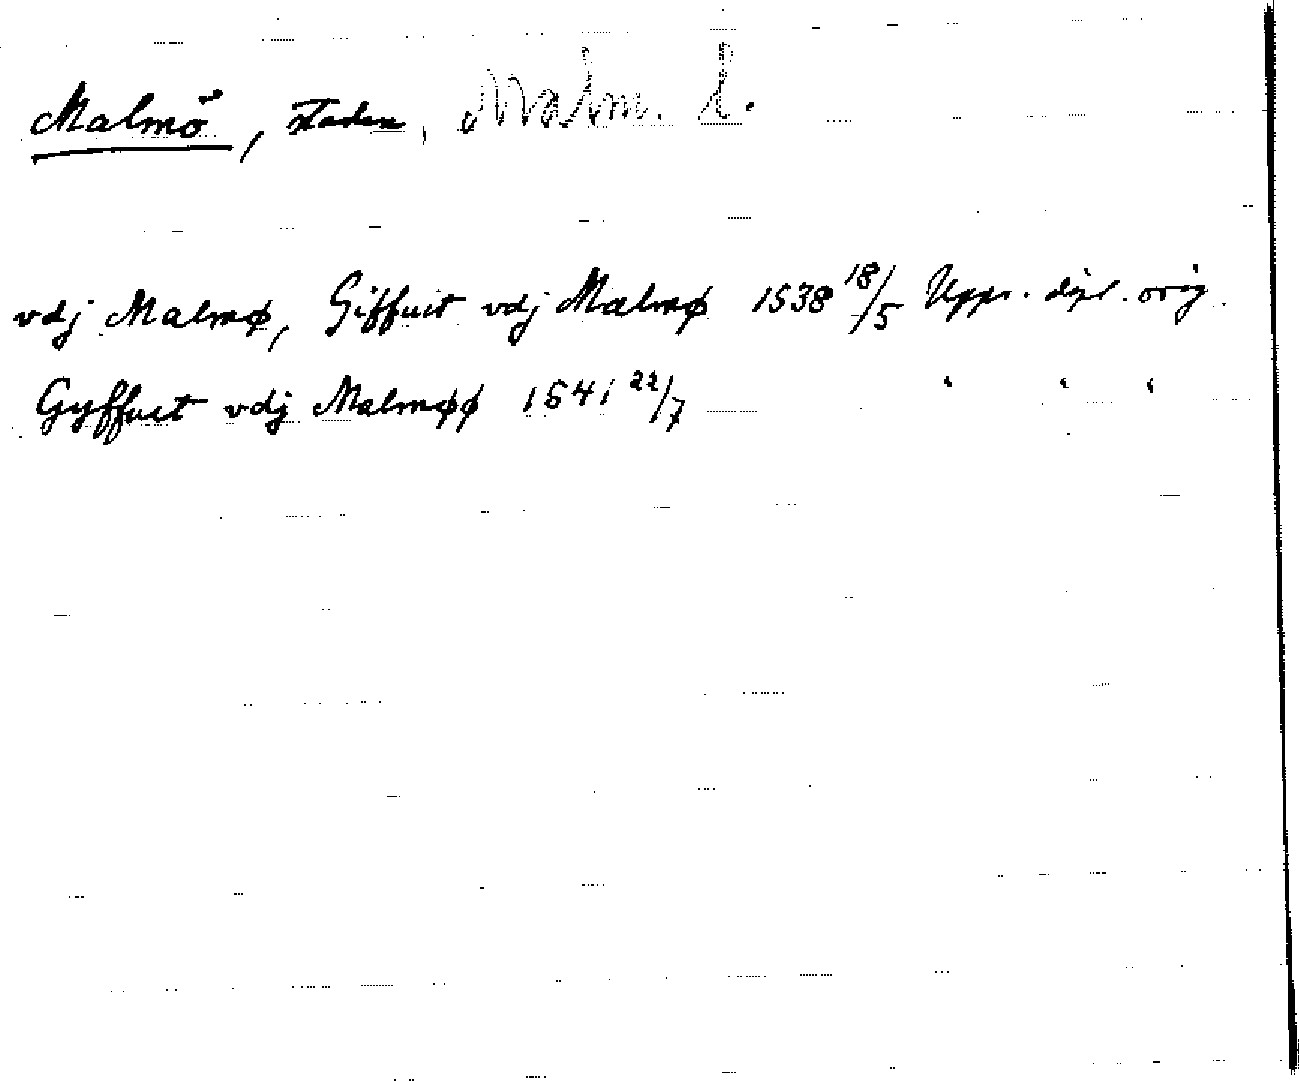 Malmö, staden, Malm. l.
vdj Malmø, Giffuet vdj Malmø 1538 18/5 Upps. dipl. orig.
Gyffuet vdj Malmøø 1541 22/7 " " "